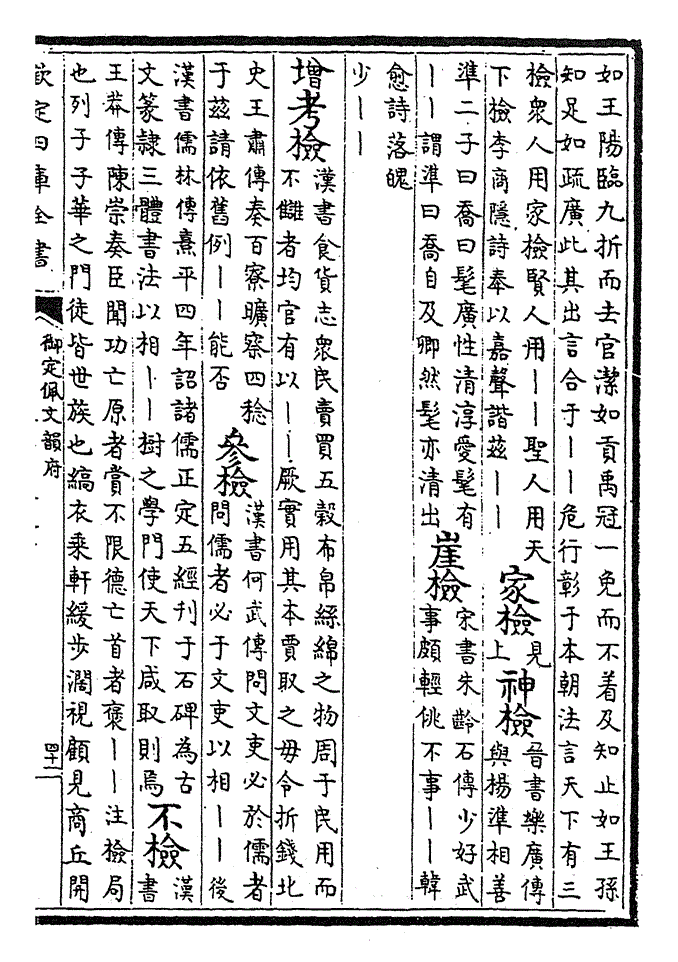 如王陽臨九折而去官潔如貢禹冠一免而不着及知止如王孫
知足如疏廣此其出言合于丨丨危行彰于本朝法言天下有三
檢衆人用家檢賢人用丨丨聖人用天
下檢李商隱詩奉以嘉聲諧茲丨丨
家檢
見
上
神檢
晉書樂廣傳
與楊準相善
準二子曰喬曰髦廣性清淳愛髦有
丨丨謂準曰喬自及卿然髦亦清出
崖檢
宋書朱齡石傳少好武
事頗輕佻不事丨丨韓
愈詩落魄
少丨丨
增考檢
漢書食貨志衆民賣買五穀布帛絲綿之物周于民用而
不讎者均官有以丨丨厥實用其本賈取之毋令折錢北
史王肅傳奏百寮曠察四稔
于茲請依舊例丨丨能否
參檢
漢書何武傳問文吏必於儒者
問儒者必于文吏以相丨丨後
漢書儒林傳熹平四年詔諸儒正定五經刊于石碑為古
文篆隸三體書法以相丨丨樹之學門使天下咸取則焉
不檢
漢
書
王莽傳陳崇奏臣聞功亡原者賞不限德亡首者褒丨丨注檢局
也列子子華之門徒皆世族也縞衣乘軒緩步濶視顧見商丘開
欽定四庫全書
御定佩文韻府
四十一